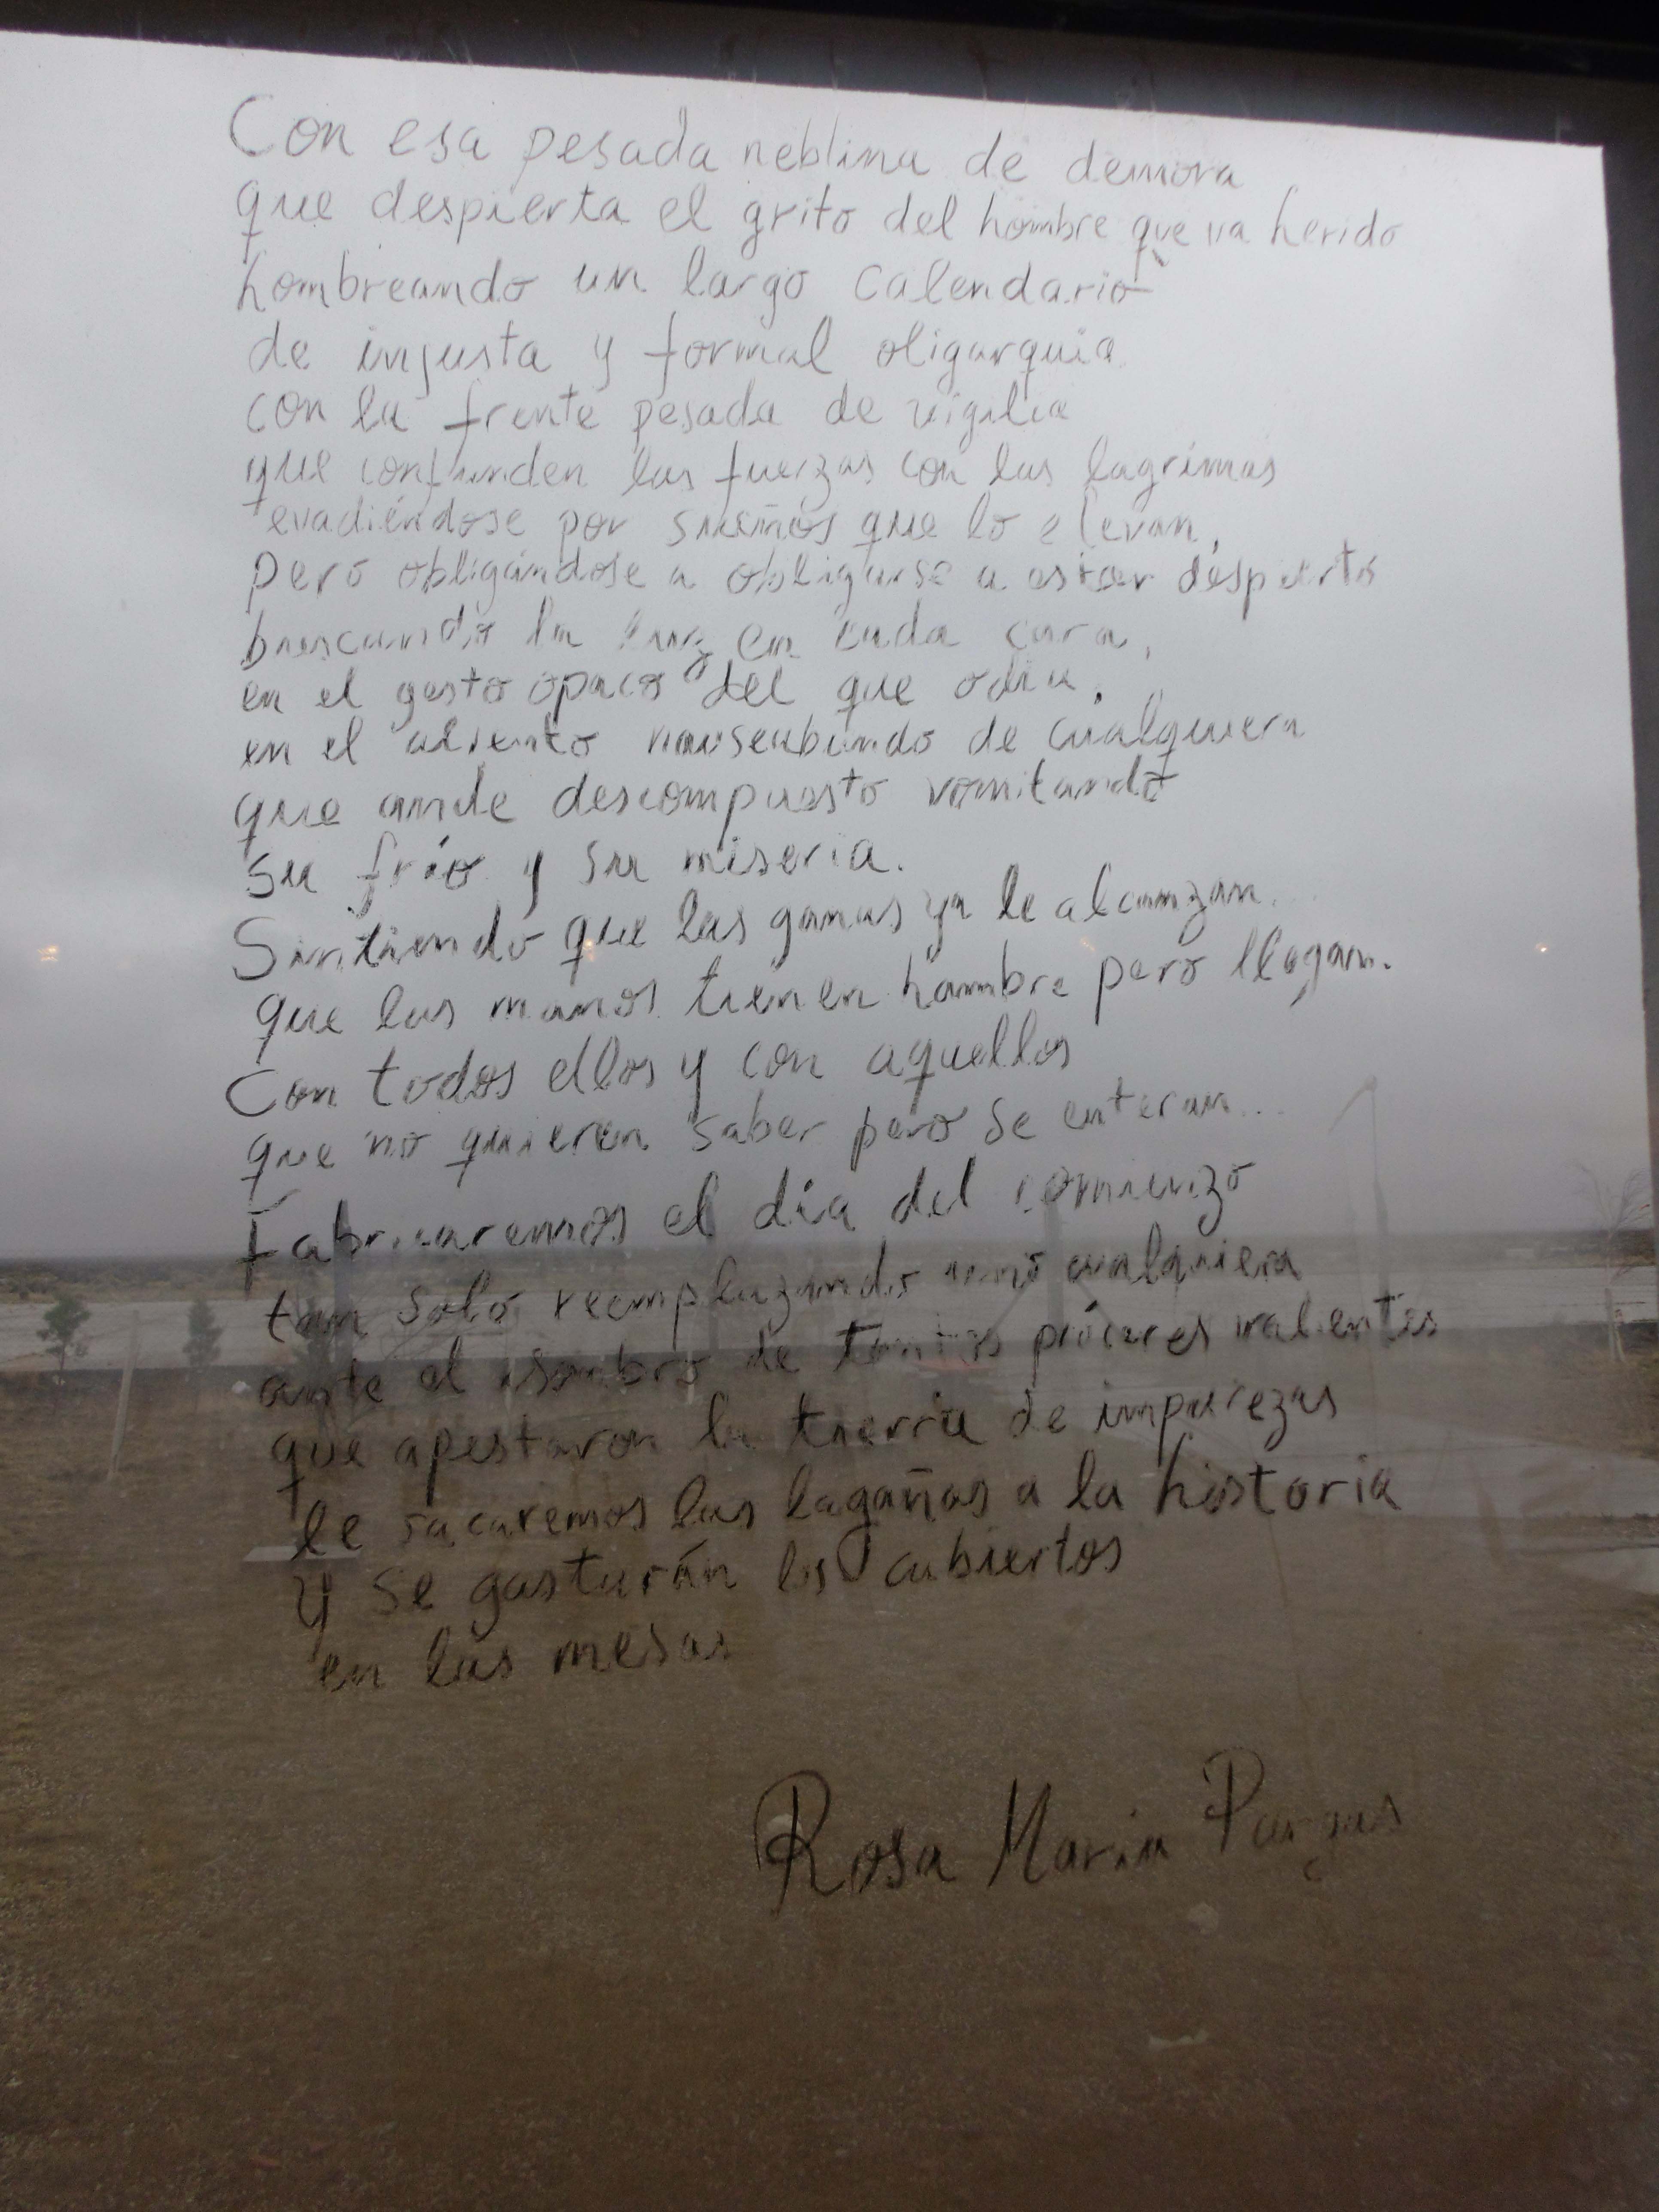 Con esa pesada neblina de demora
que despierta el grito del hombre que va herido
hombreando un largo calendario
de injusta y formal oligarquía
con la frente pesada de vigilia
que confunden las fuerzas con las lagrimas
evadiéndose por sueños que lo elevan,
pero obligándose a obligarse a estar despierto
buscando la luz en cada cara,
en el gesto opaco del que odia,
en el aliento nauseabundo de cualquiera
que ande descompuesto vomitando
su frío y su miseria.
Sintiendo que las ganas ya le alcanzan...
que las manos tienen hambre pero llegan.
Con todos ellos y con aquellos
que no quieren saber pero se enteran...
Fabricaremos el día del comienzo
tan solo reemplazando uno cualquiera
ante el asombro de tantos próceres valientes
que apestaron la tierra de impurezas
le sacaremos las lagañas a la historia
y se gastarán los cubiertos
en las mesas
Rosa María Pargas